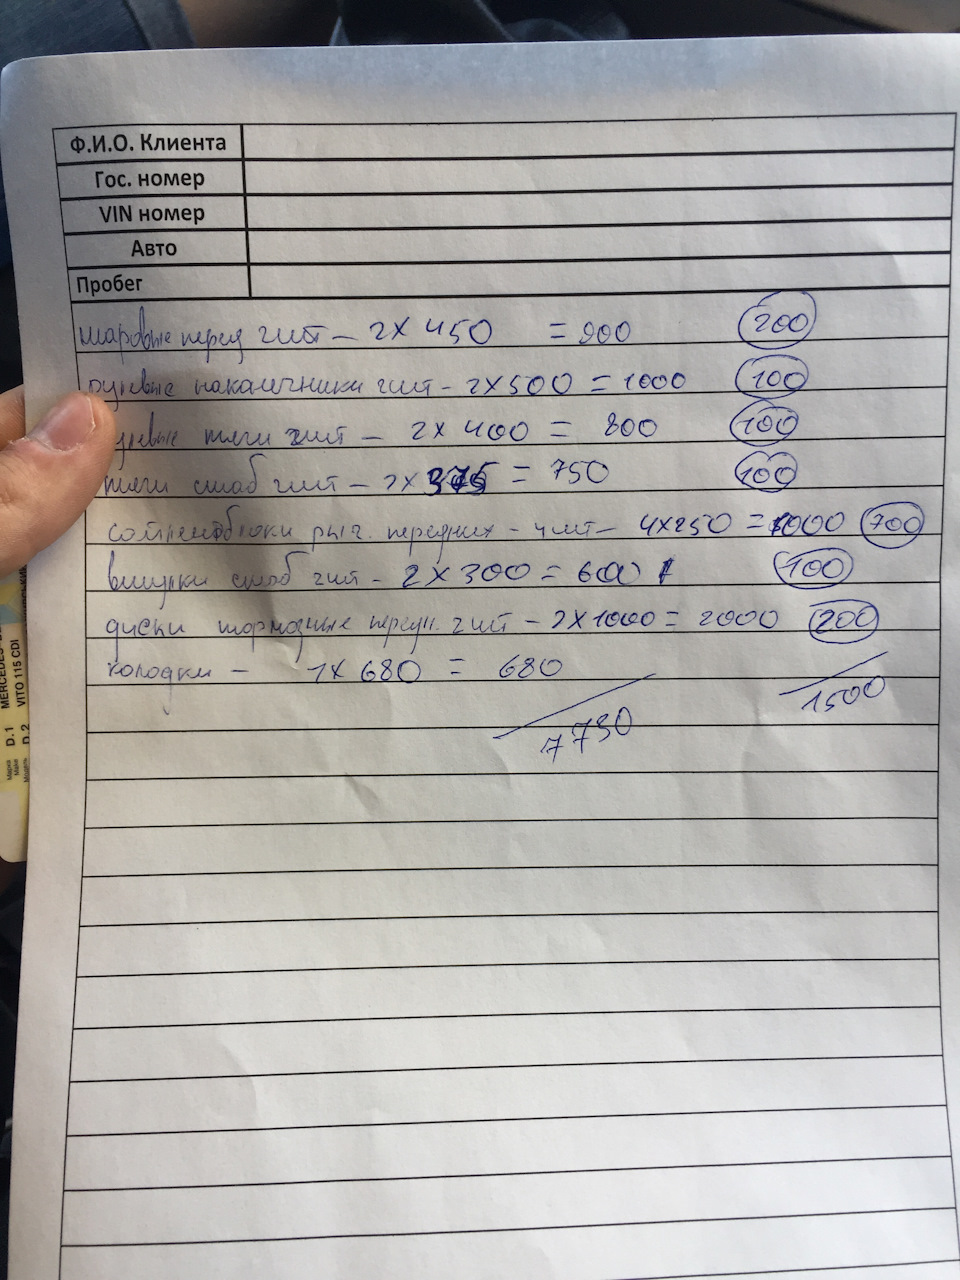 Ф.И.О. Клиента
Гос. номер
VIN номер
Авто
Пробег
шаровые перед 2шт – 2 х 450 = 900 200
рулевые наконечники 2шт - 2х500 = 1000 100
улевые тяги 2шт – 2 х 400 = 800 100
тяги стаб 2шт – 2х375 = 750 100
сайлентблоки рыч. передних - 4шт – 4х250 = 1000 700
втулки стаб 2шт - 2 х 300 = 600 100
диски тормозные передн. 2шт - 2х1000 = 2000 200
колодки – 1х 680 = 680
7730 1500
Марка D.1 MERCEDES-
Make
Модель D.2 VITO 115 CDI